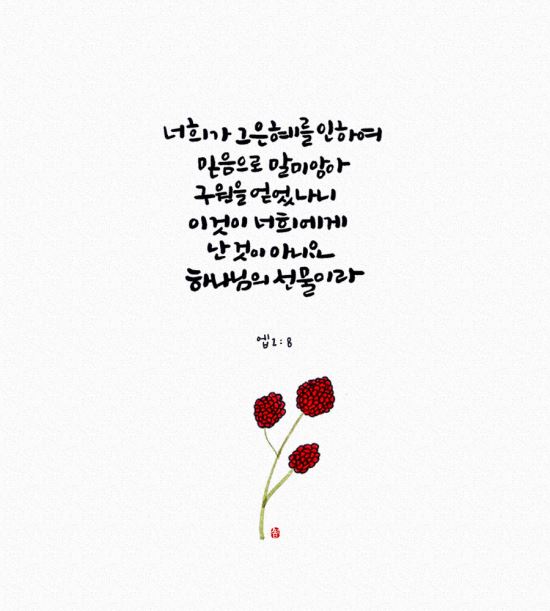 너희가 그은혜를 인하여
믿음으로 말미암아
구원을 얻었나니
이것이 너희에게
난 것이 아니요
하나님의 선물이라
엡 2:8